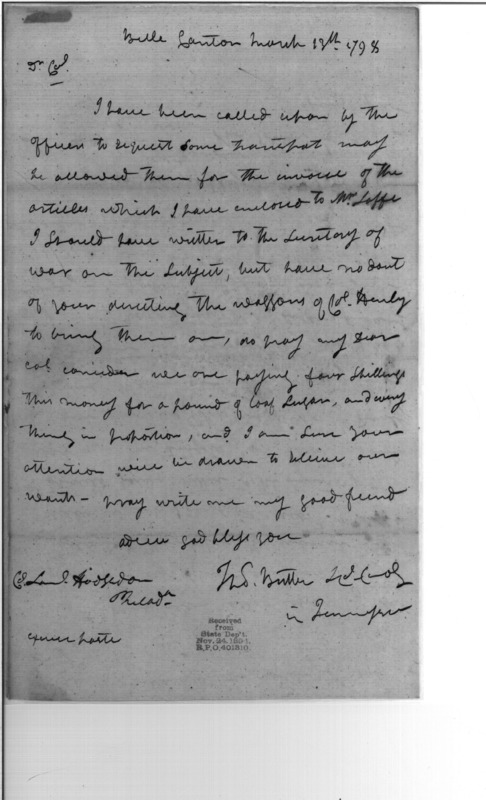 Belle Canton March 13th 1798
Dr Col.
I have been called upon by the
officers to request some transport may
be allowed them for the invoice of the
articles which I have enclosed to Mr.
I should have written to the Secretary of
war on the subject, but have no dout
of your directing the waggons of Col. Henly
to bring them on, do pray my dear
col. consider we are paying four shillings
this money for a pound of loaf sugar, and every
thing in proportion, and I am sure your
attention will be drawn to relieve our
wants - pray write me my good friend
adieu god bless you
Col Saml. Hodgdon
Philada.
Tho. Butler Lt Col. Comdg
in Tennessee
excuse haste
Received
from
State Dep't.
Nov. 24, 1894.
R.P.O. 401310